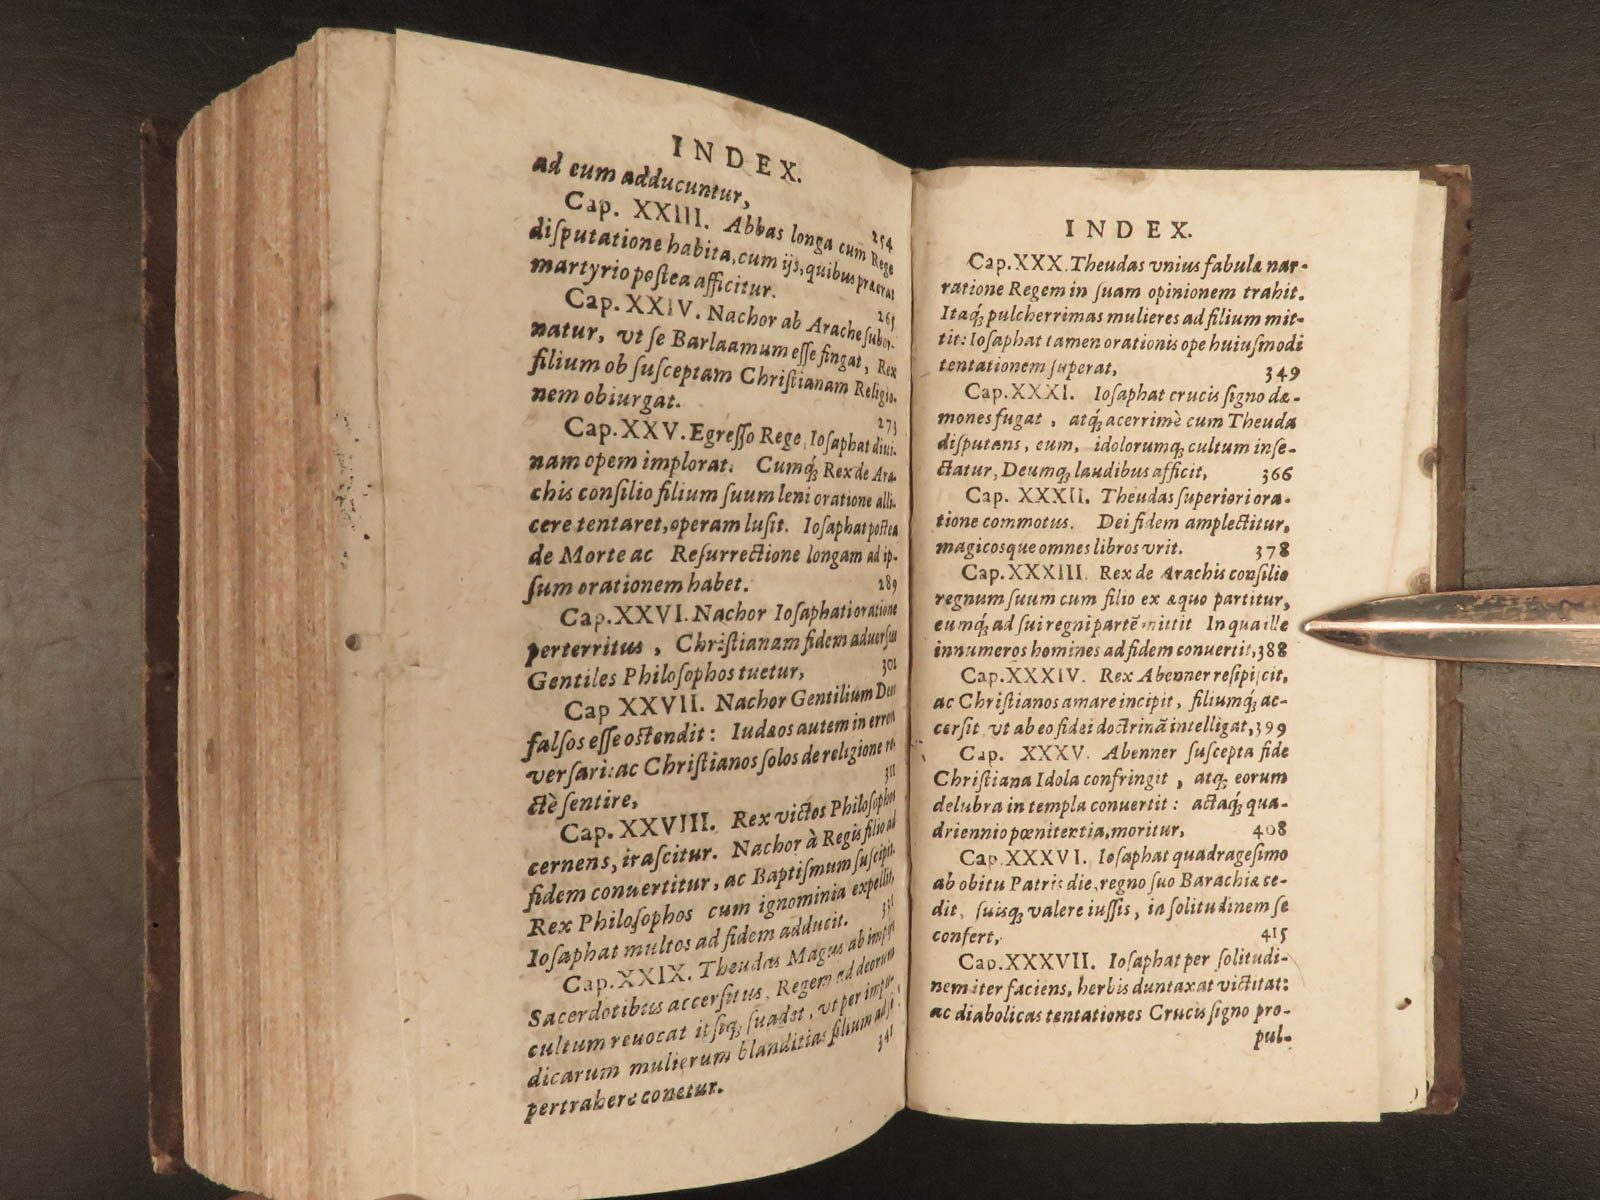 INDEX.
ad eum adducuntur,
254
Cap. XXIII. Abbas longa cum Rege
diſputatione habita, cum ijs, quibus præerat
martyrio poſtea afficitur.
263
Cap. XXIV. Nachor ab Arache ſubor-
natur, vt ſe Barlaamum eſſe fingat, Rex
filium ob ſuſceptam Chriſtianam Religio-
nem obiurgat.
273
Cap. XXV. Egreſſo Rege, Ioſaphat diui-
nam opem implorat. Cumq́; Rex de Ara-
chis conſilio filium ſuum leni oratione alli-
cere tentaret, operam luſit. Ioſaphat poſtea
de Morte ac Reſurrectione longam ad ip-
ſum orationem habet.
289
Cap. XXVI. Nachor Ioſaphati oratione
perterritus, Chriſtianam fidem aduerſus
Gentiles Philoſophos tuetur,
301
Cap XXVII. Nachor Gentilium Deos
falſos eſſe oſtendit: Iudæos autem in errore
verſari: ac Chriſtianos ſolos de religione re-
ctè ſentire,
311
Cap. XXVIII. Rex victos Philoſophos
cernens, iraſcitur. Nachor à Regis filio ad
fidem conuertitur, ac Baptiſmum ſuſcipit.
Rex Philoſophos cum ignominia expellit,
Ioſaphat multos ad fidem adducit.
331
Cap. XXIX. Theudas Magus ab impijs
Sacerdotibus accerſitus, Regem ad deorum
cultum reuocat itſq; ſuadet, vt per impu-
dicarum mulierum blanditias filium ad ſe
pertrahere conetur.
341
INDEX.
Cap. XXX. Theudas vnius fabulæ nar-
ratione Regem in ſuam opinionem trahit.
Itaq́; pulcherrimas mulieres ad filium mit-
tit: Ioſaphat tamen orationis ope huiuſmodi
tentationem ſuperat, 349
Cap. XXXI. Ioſaphat crucis ſigno dæ-
mones fugat, atq́; acerrimè cum Theuda
diſputans, eum, idolorumq́; cultum inſe-
ctatur, Deumq́; laudibus afficit, 366
Cap. XXXII. Theudas ſuperiori ora-
tione commotus. Dei fidem amplectitur,
magicosque omnes libros vrit. 378
Cap. XXXIII. Rex de Arachis conſilio
regnum ſuum cum filio ex æquo partitur,
eumq́; ad ſui regni partẽ mittit In qua ille
innumeros homines ad fidem conuertit, 388
Cap. XXXIV. Rex Abenner reſipiſcit,
ac Chriſtianos amare incipit, filiumq́; ac-
cerſit vt ab eo fidei doctrinã intelligat, 399
Cap. XXXV. Abenner ſuſcepta fide
Chriſtiana Idola confringit, atq; eorum
delubra in templa conuertit: actaq́; qua-
driennio pœnitentia, moritur, 408
Cap. XXXVI. Ioſaphat quadrageſimo
ab obitu Patris die, regno ſuo Barachiæ ce-
dit, ſuisq; valere iuſſis, in ſolitudinem ſe
confert, 415
Cap. XXXVII. Ioſaphat per ſolitudi-
nem iter faciens, herbis duntaxat victitat:
ac diabolicas tentationes Crucis ſigno pro-
pul-